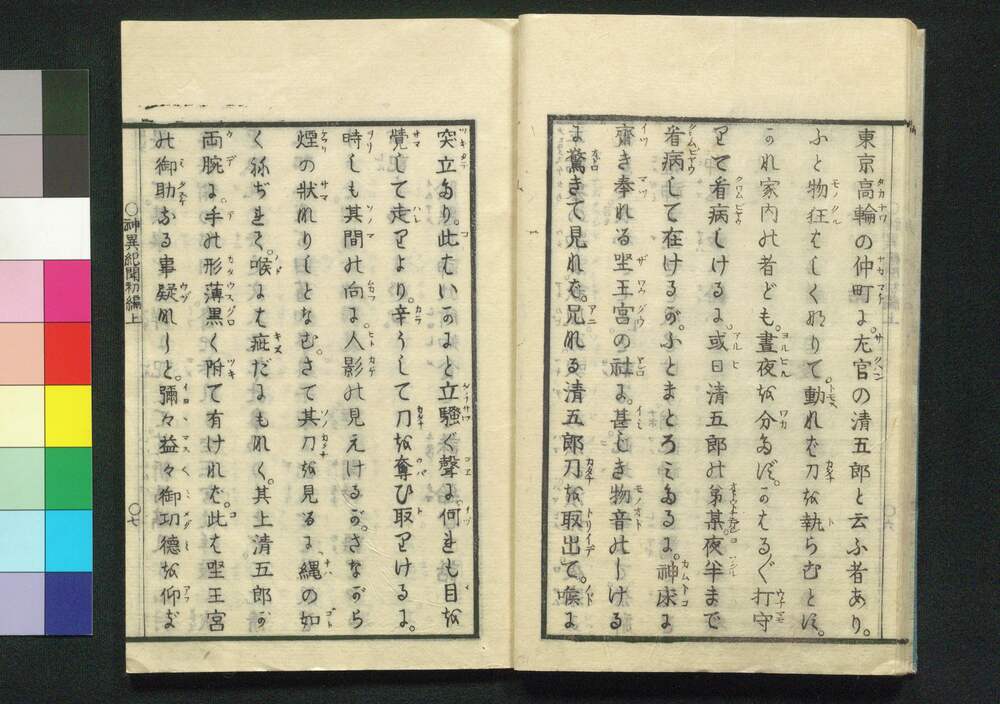 東京高輪の仲町に。左官の清五郎と云ふ者あり。
ふと物狂はしくなりて動れば刀を執らむとす。
かれ家内の者ども。晝夜を分かず。かはるぐ打守
りて看病しけるに。或日清五郎の弟某。夜半まで
看病して在けるが。ふとまどろみたるに。神床に
齋き奉れる坐王宮の社に。甚じき物音のしける
に驚きて見れば。兄なる清五郎刀を取出て。喉に
突立たり。此はいかにと立騒ぐ聲に。何れも目を
覺して走りより。辛うして刀を奪ひ取りけるに。
時しも其間の向に人影の見えけるが。さながら
煙の状なりしとなむ。さて其刀を見るに、縄の如
くねぢれて。喉には疵だにもなく。其上清五郎が
両腕に。手の形薄黒く附て有ければ。此は坐王宮
の御助なる事疑なしと。彌々益々御功德を仰ぎ
〇神異紀聞初編上
〇七